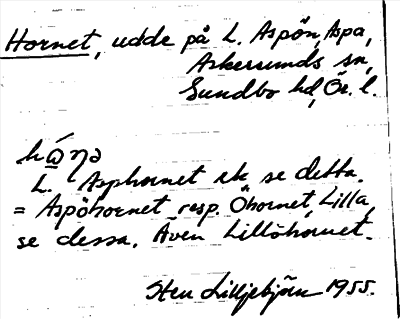 Hornet, udde på L. Aspön, Aspa,
Askersunds sn,
Sundbo hd, Ör. l.
hώŋə
L. Asphornet etc se detta.
= Aspöhornet resp. Öhornet, Lilla,
se dessa. Även Lillöhornet.
Sten Lilljebjörn 1955.